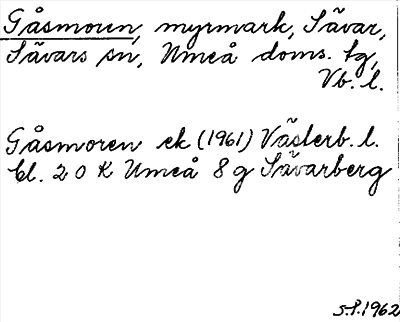 Gåsmoren, myrmark, Sävar,
Sävars sn, Umeå doms. tg,
Vb. l.
Gåsmoren ek (1961) Västerb. l.
bl. 20 K Umeå 8 g Sävarberg
S.P. 1962